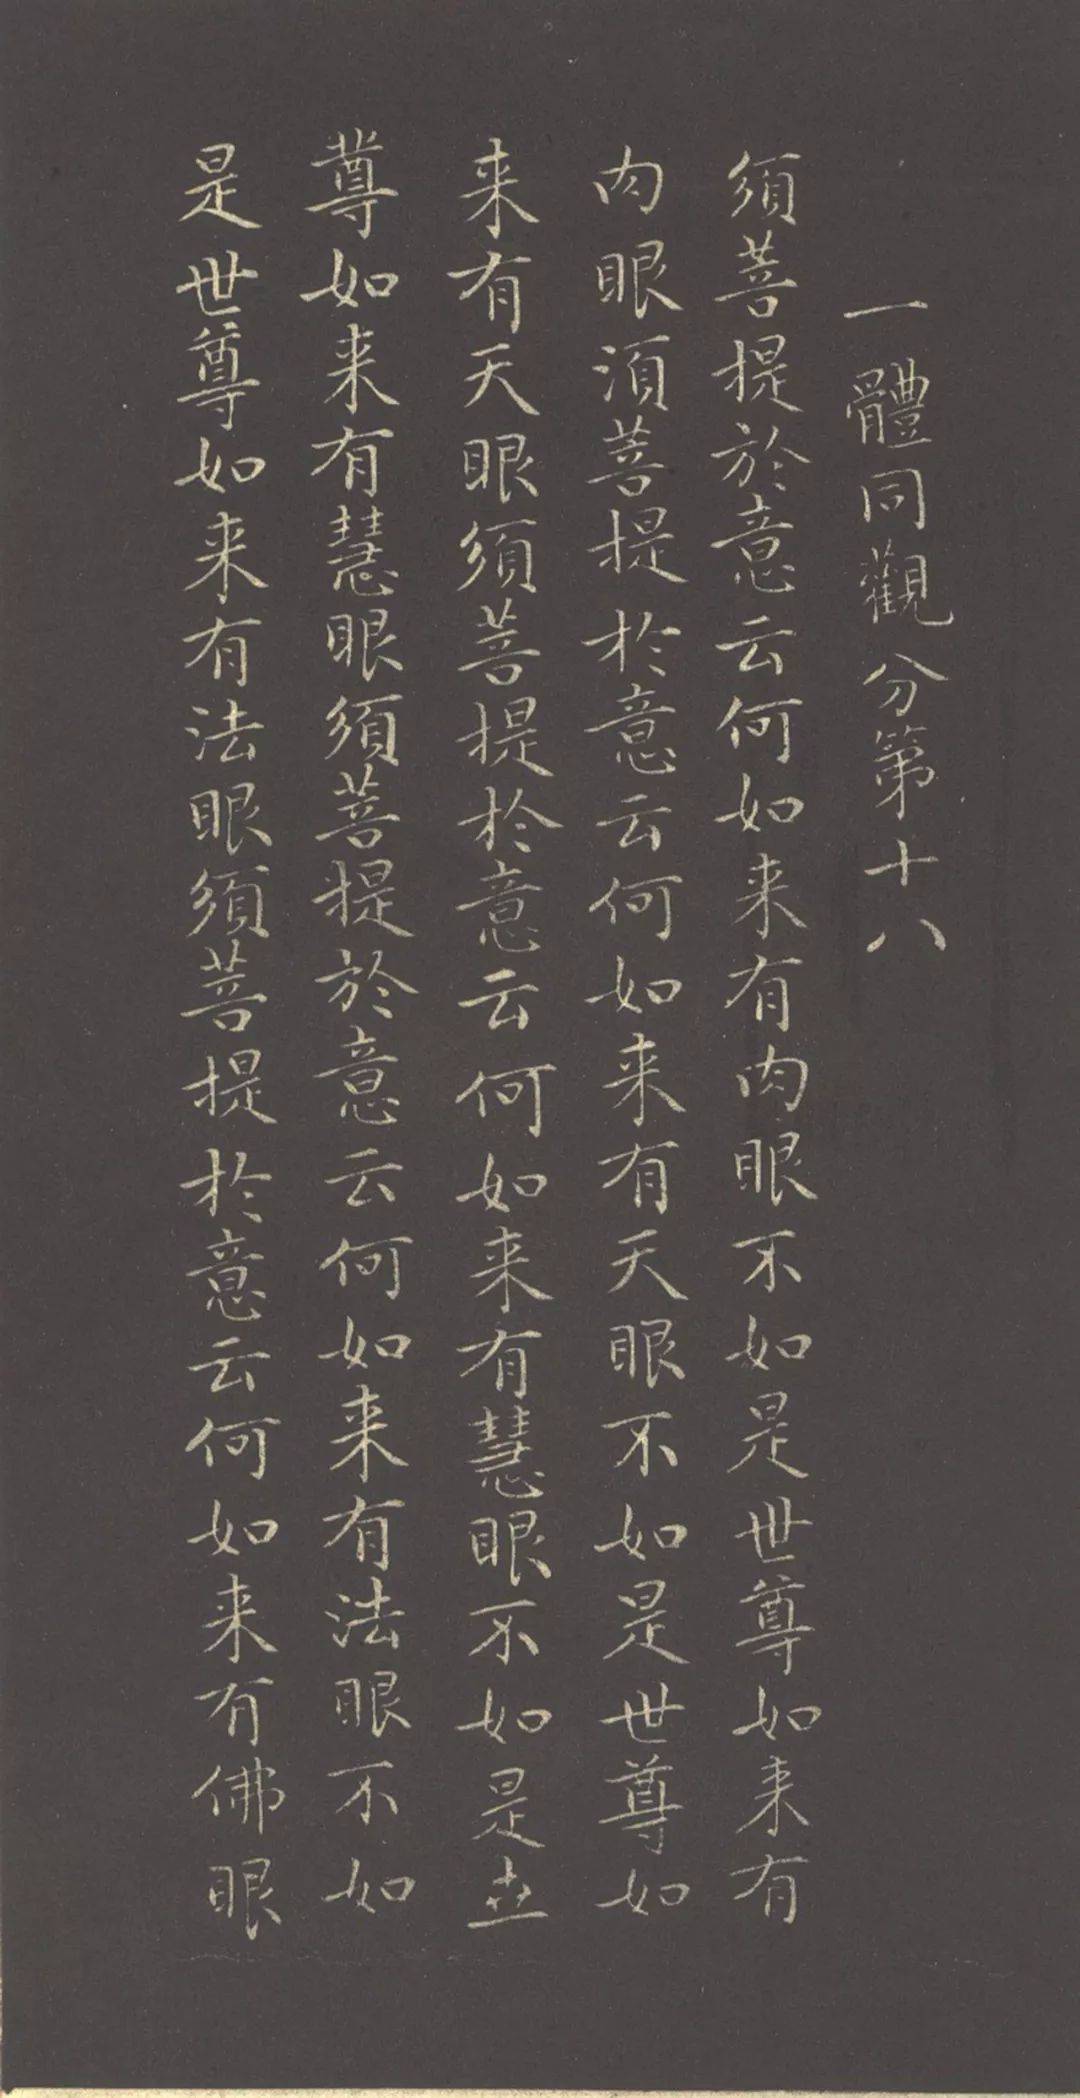 一體同觀分第十八
須菩提於意云何如来有肉眼不如是世尊如来有
肉眼須菩提於意云何如来有天眼不如是世尊如
来有天眼須菩提於意云何如来有慧眼不如是世
尊如来有慧眼須菩提於意云何如来有法眼不如
是世尊如来有法眼須菩提於意云何如来有佛眼